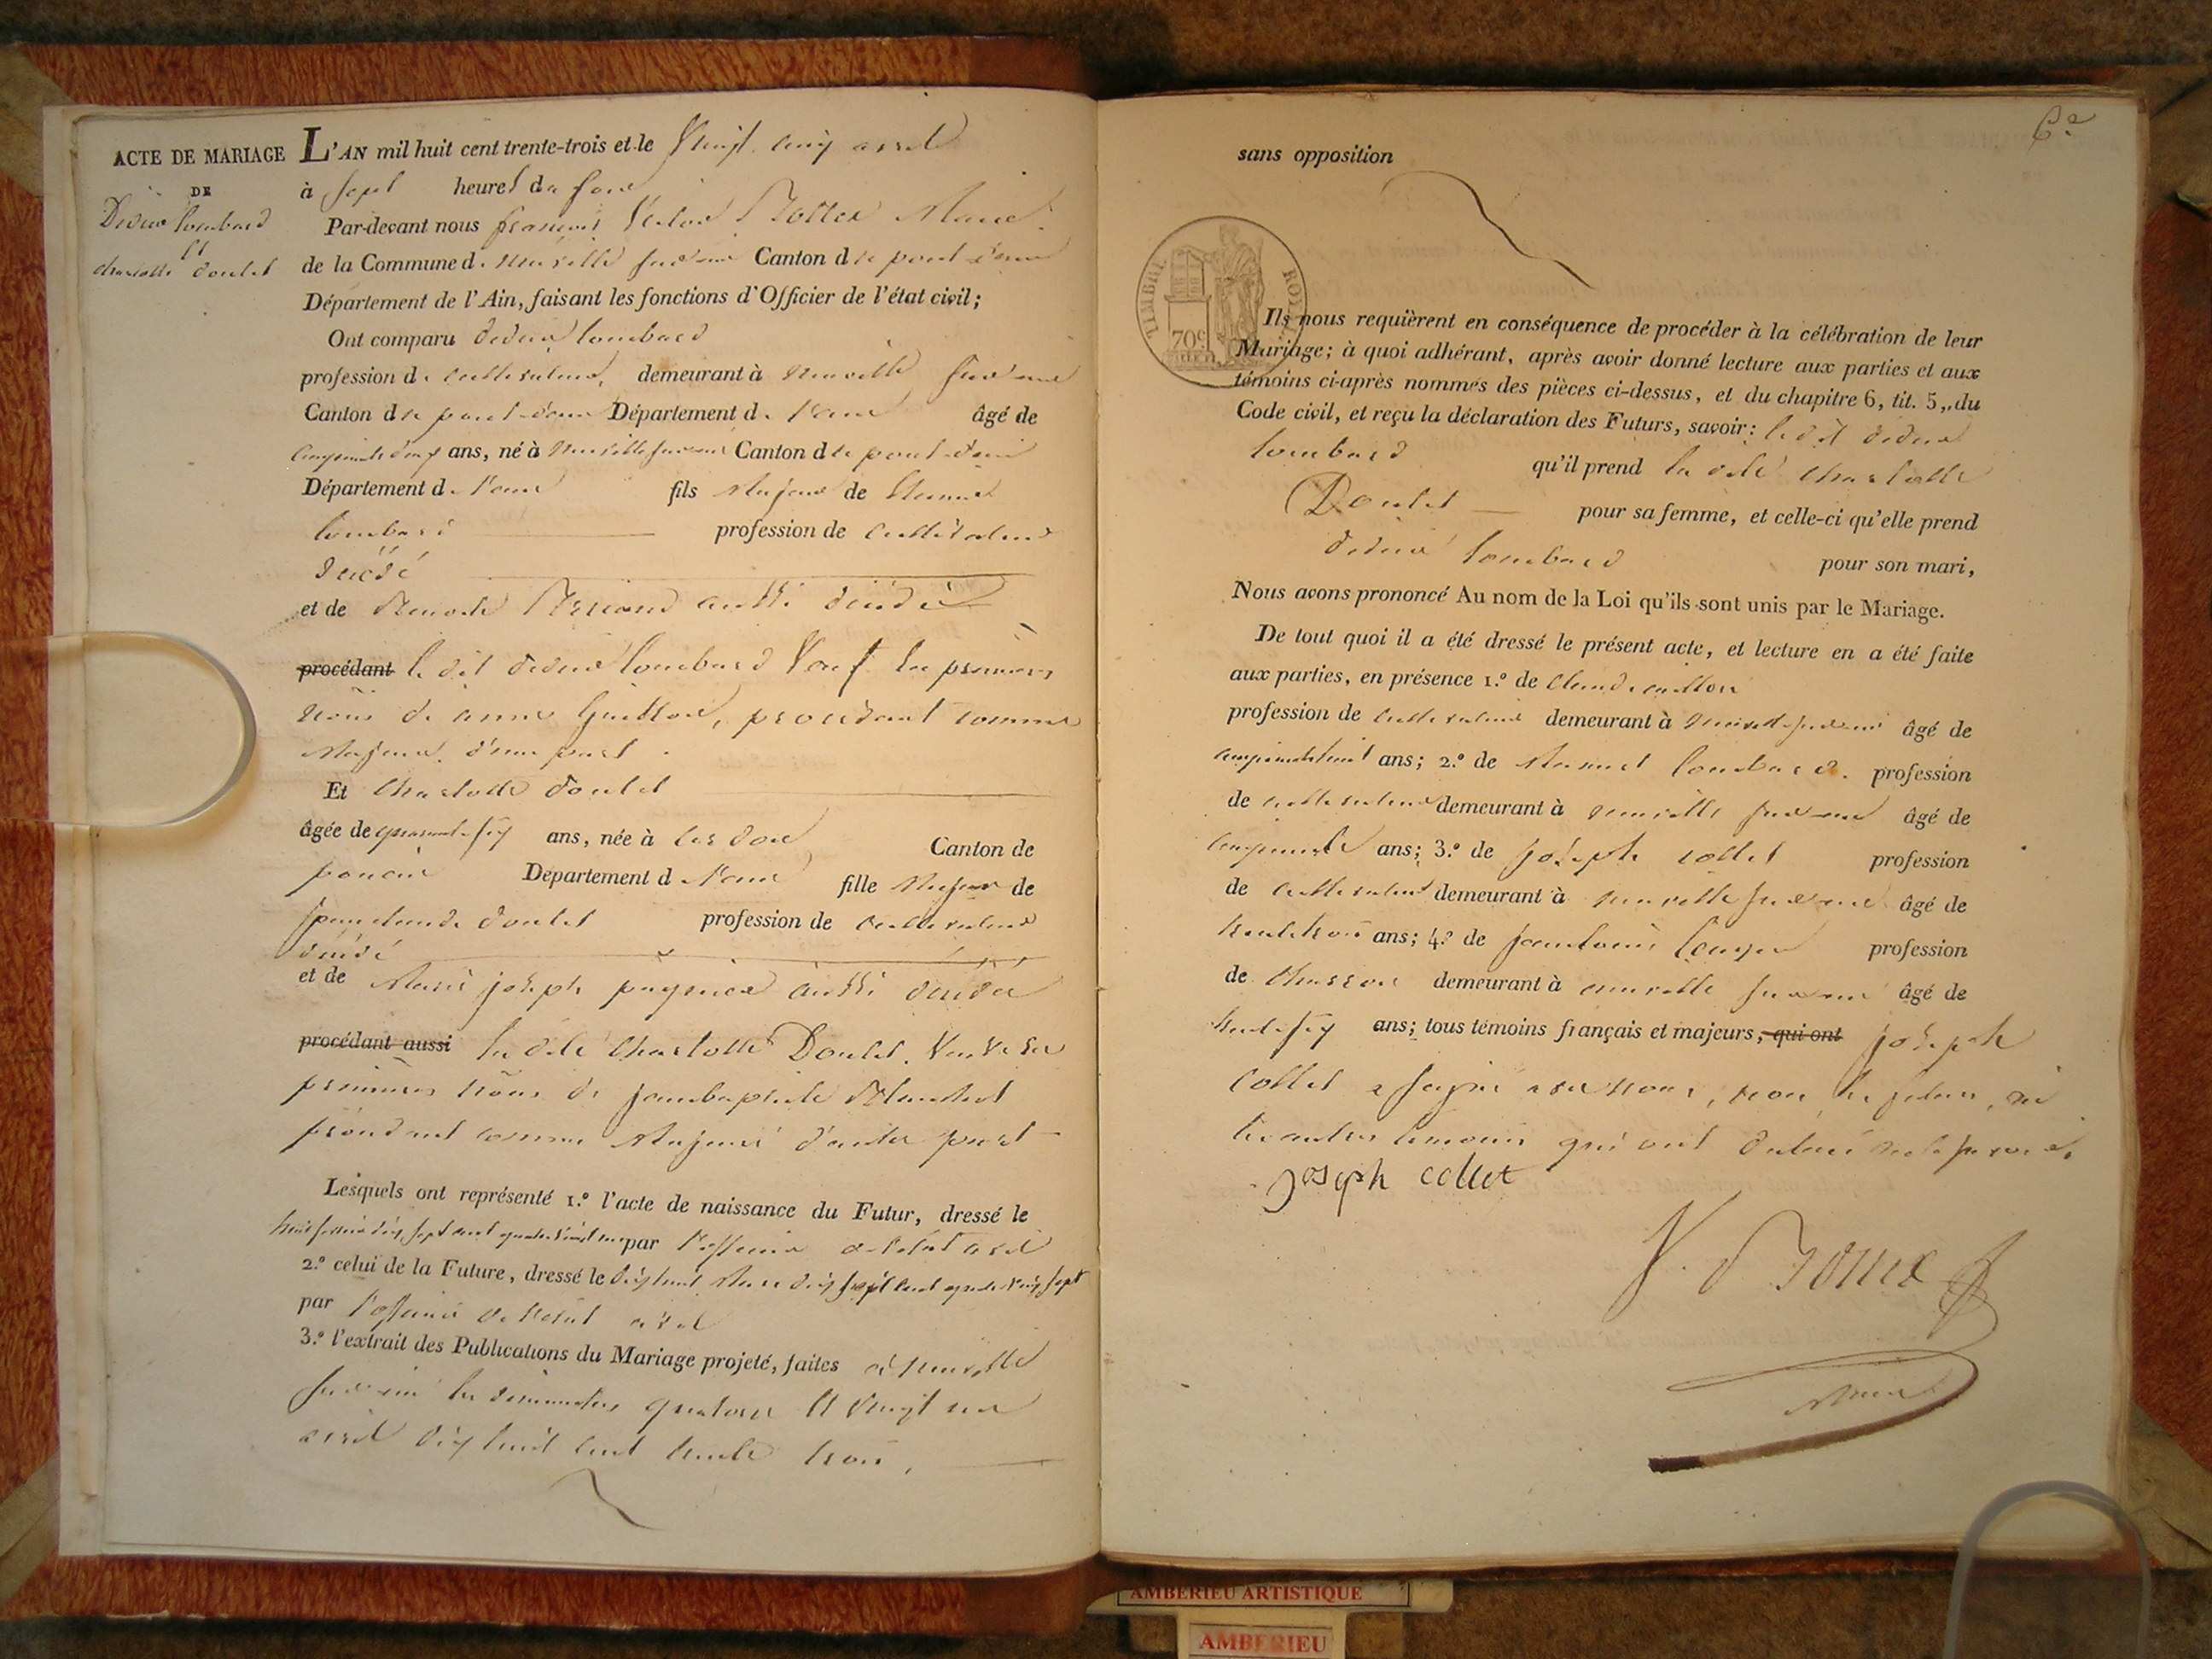 ACTE DE MARIAGE
DE
Didier Lombard
et
charlotte Doulet
L'AN mil huit cent trente-trois et le Vingt cinq avril
à sept heures du soir
Par-devant nous françois Maire
de la Commune de neuville sur ain Canton de pont d'ain
Département de l'Ain, faisant les fonctions d'Officier de l'état civil;
Ont comparu didier lombard
profession de cultivateur, demeurant à neuville sur ain
Canton de pont-d'ain Département de l'ain âgé de
ans, né à neuville sur ain Canton de pont-d'ain
Département de l'ain fils majeur de
lombard profession de cultivateur
décédé
et de aussi décédée
procédant le dit didier lombard Veuf en premieres
noces de anne Guillon, procédant comme
Majeur d'une part
Et Charlotte doulet
âgée de quarante six ans, née à Cerdon Canton de
poncin Département de l'ain fille Majeure de
jean claude doulet profession de cultivateur
décédé
et de Marie joseph aussi décédée
procédant aussi la dite Charlotte Doulet. Veuve en
premieres noces de jean baptiste
procédant comme Majeure d'autre part
Lesquels ont représenté 1.º l'acte de naissance du Futur, dressé le
par l'officier de l'état civil
2.º celui de la Future, dressé le dix huit Mars dix sept cent quatre vingt sept
par l'officier de l'état civil
3.º l'extrait des Publications du Mariage projeté, faites à neuville
sur ain les dimanches quatorze et vingt un
avril dix huit cent trente trois,
6.e
sans opposition
TIMBRE ROYAL
70c
Ils nous requièrent en conséquence de procéder à la célébration de leur
Mariage; à quoi adhérant, après avoir donné lecture aux parties et aux
témoins ci-après nommés des pièces ci-dessus, et du chapitre 6, tit. 5, du
Code civil, et reçu la déclaration des Futurs, savoir: le dit didier
lombard qu'il prend la dite charlotte
Doulet pour sa femme, et celle-ci qu'elle prend
didier lombard pour son mari,
Nous avons prononcé Au nom de la Loi qu'ils sont unis par le Mariage.
De tout quoi il a été dressé le présent acte, et lecture en a été faite
aux parties, en présence 1.º de Claude
profession de cultivateur demeurant à neuville sur ain âgé de
cinquante huit ans; 2.º de lombard. profession
de cultivateur demeurant à neuville sur ain âgé de
cinquante ans; 3.º de joseph collet profession
de cultivateur demeurant à neuville sur ain âgé de
trente trois ans; 4.º de jean louis profession
de demeurant à neuville sur ain âgé de
trente six ans; tous témoins français et majeurs, qui ont joseph
collet a signé avec nous, non les futurs, ni
les autres témoins qui ont déclaré ne le savoir.
joseph collet
Maire
AMBERIEU ARTISTIQUE
AMBERIEU